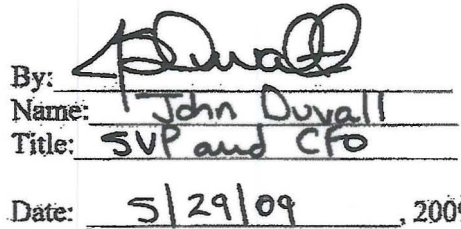 By: JDuvall
Name: John Duvall
Title: SVP and CFO
Date: 5/29/09, 2009